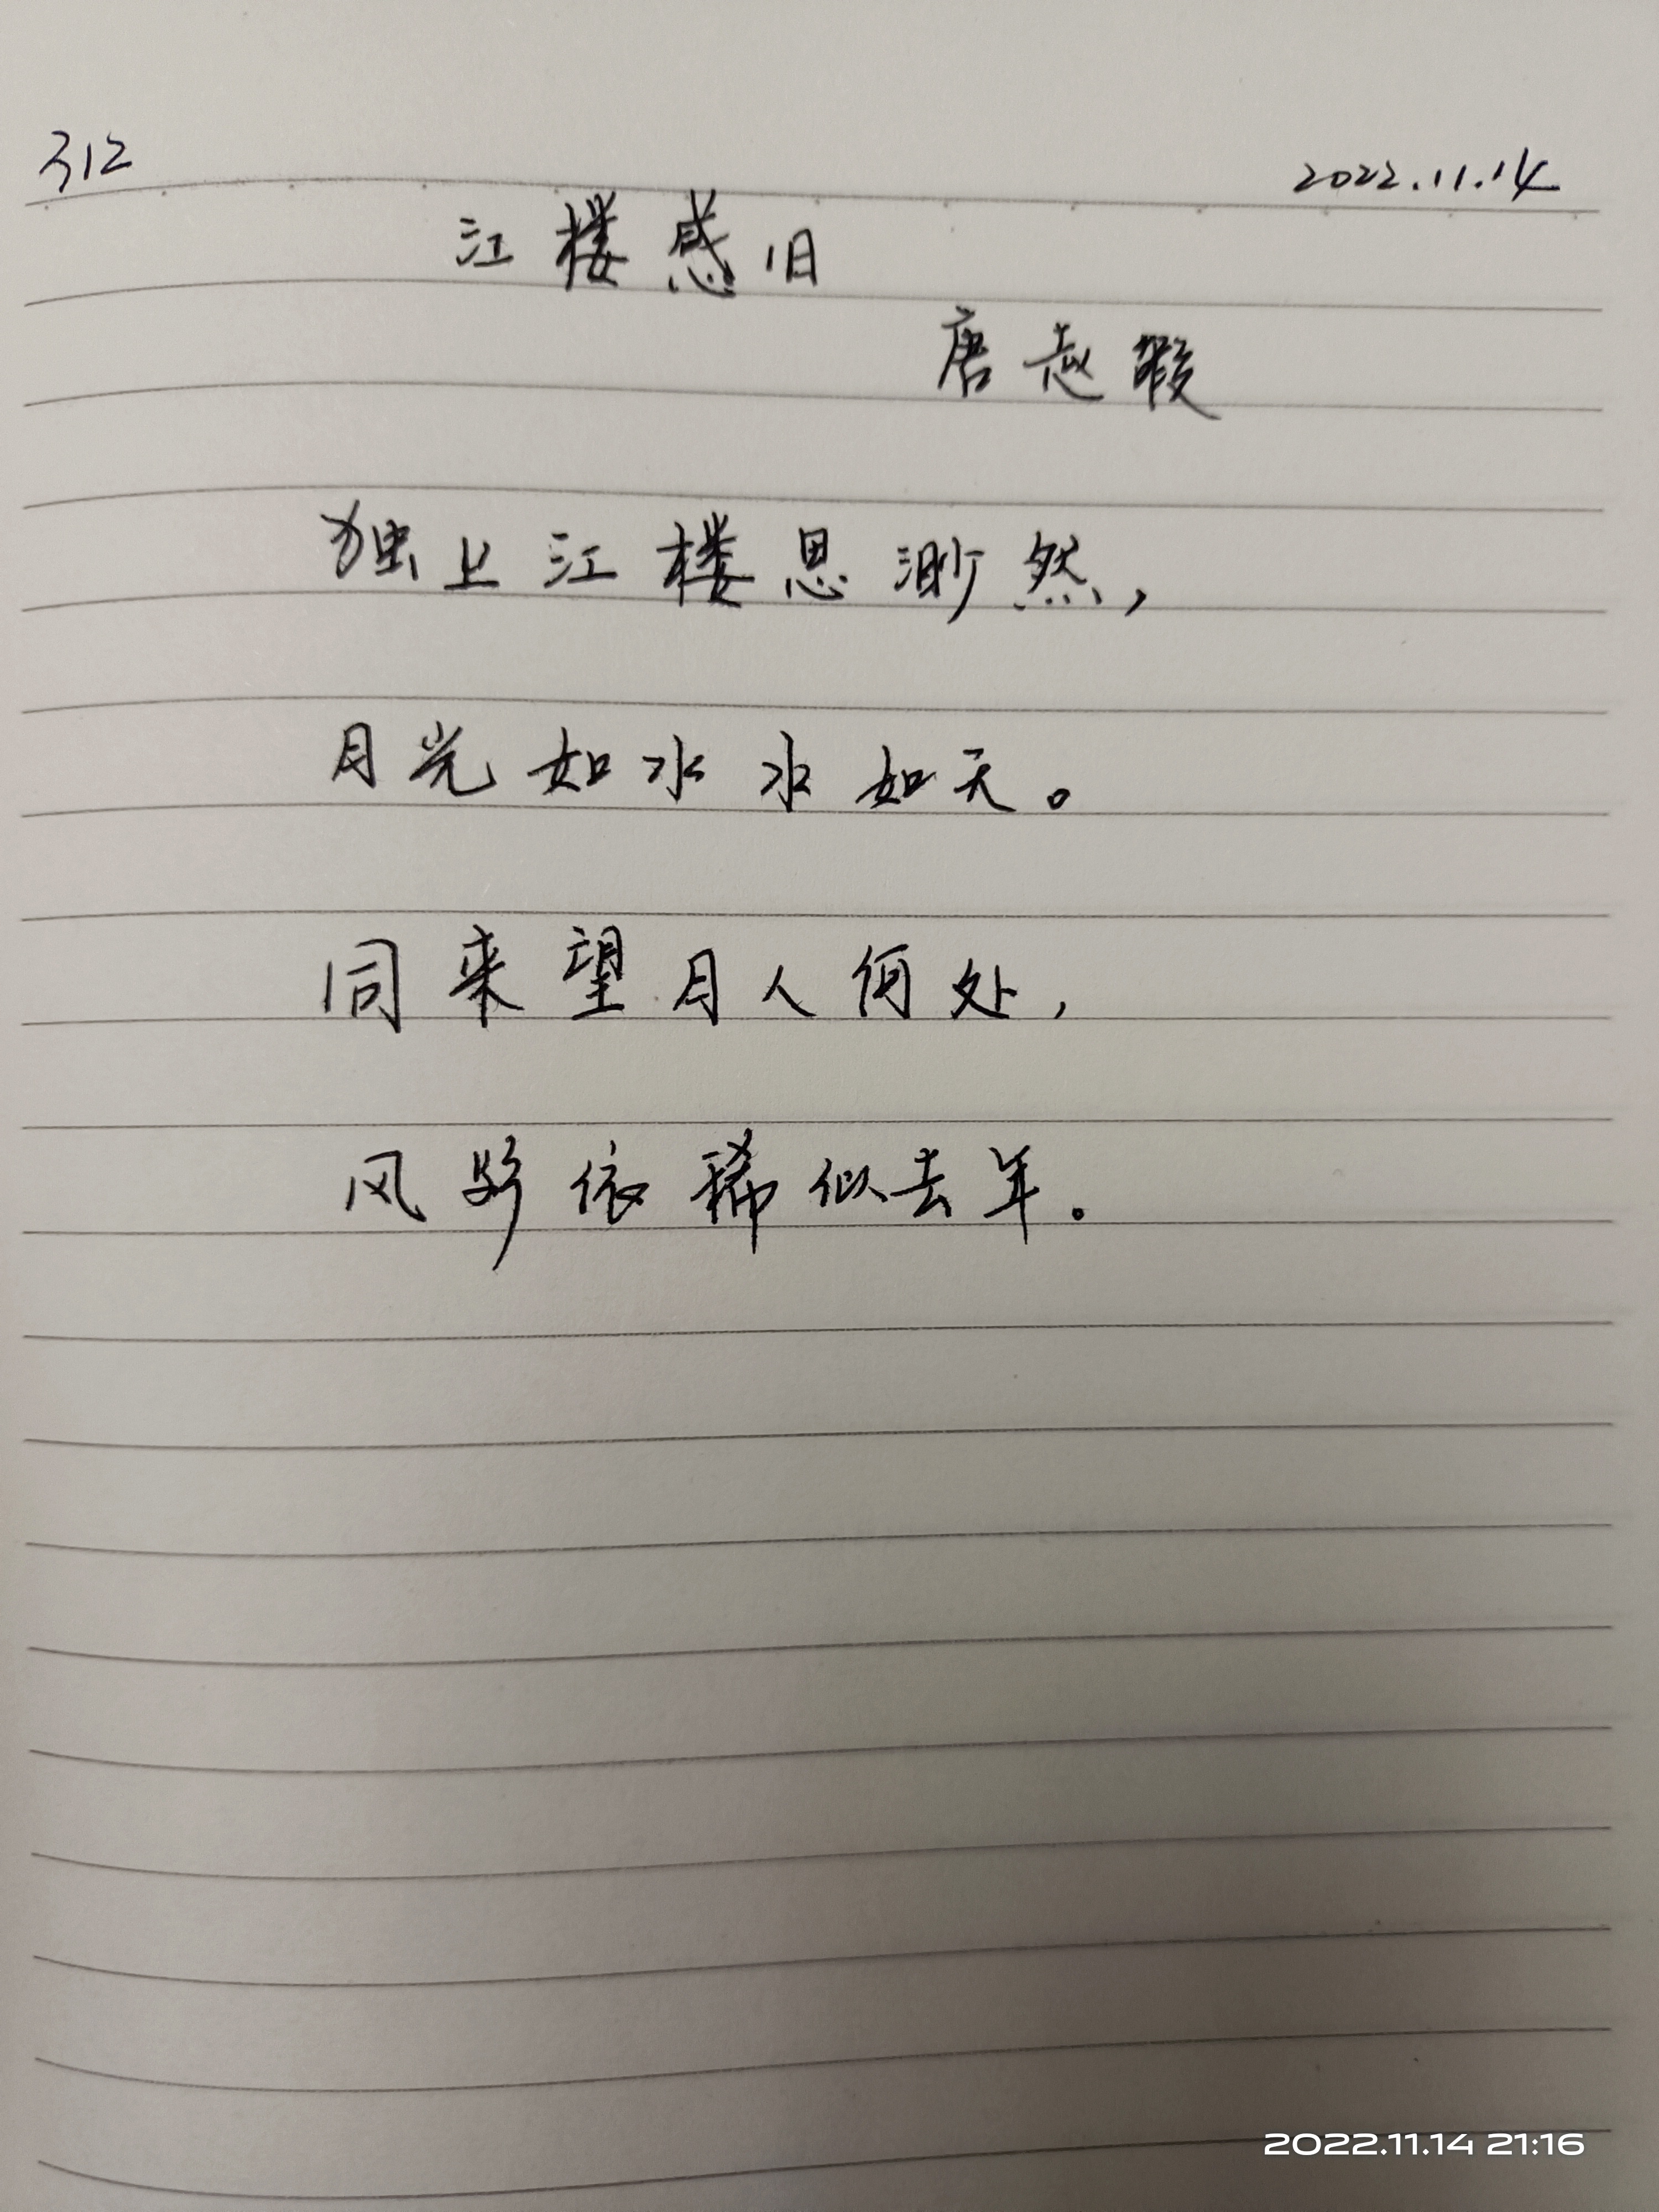 312
2022.11.14
江楼感旧
唐 赵嘏
独上江楼思渺然，
月光如水水如天。
同来望月人何处，
风景依稀似去年。
2022.11.14 21:16